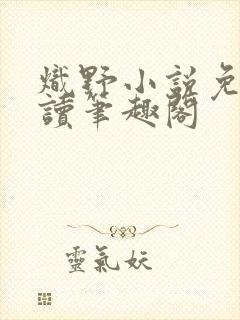 熾野小說免
讀筆趣閣
靈氣妖